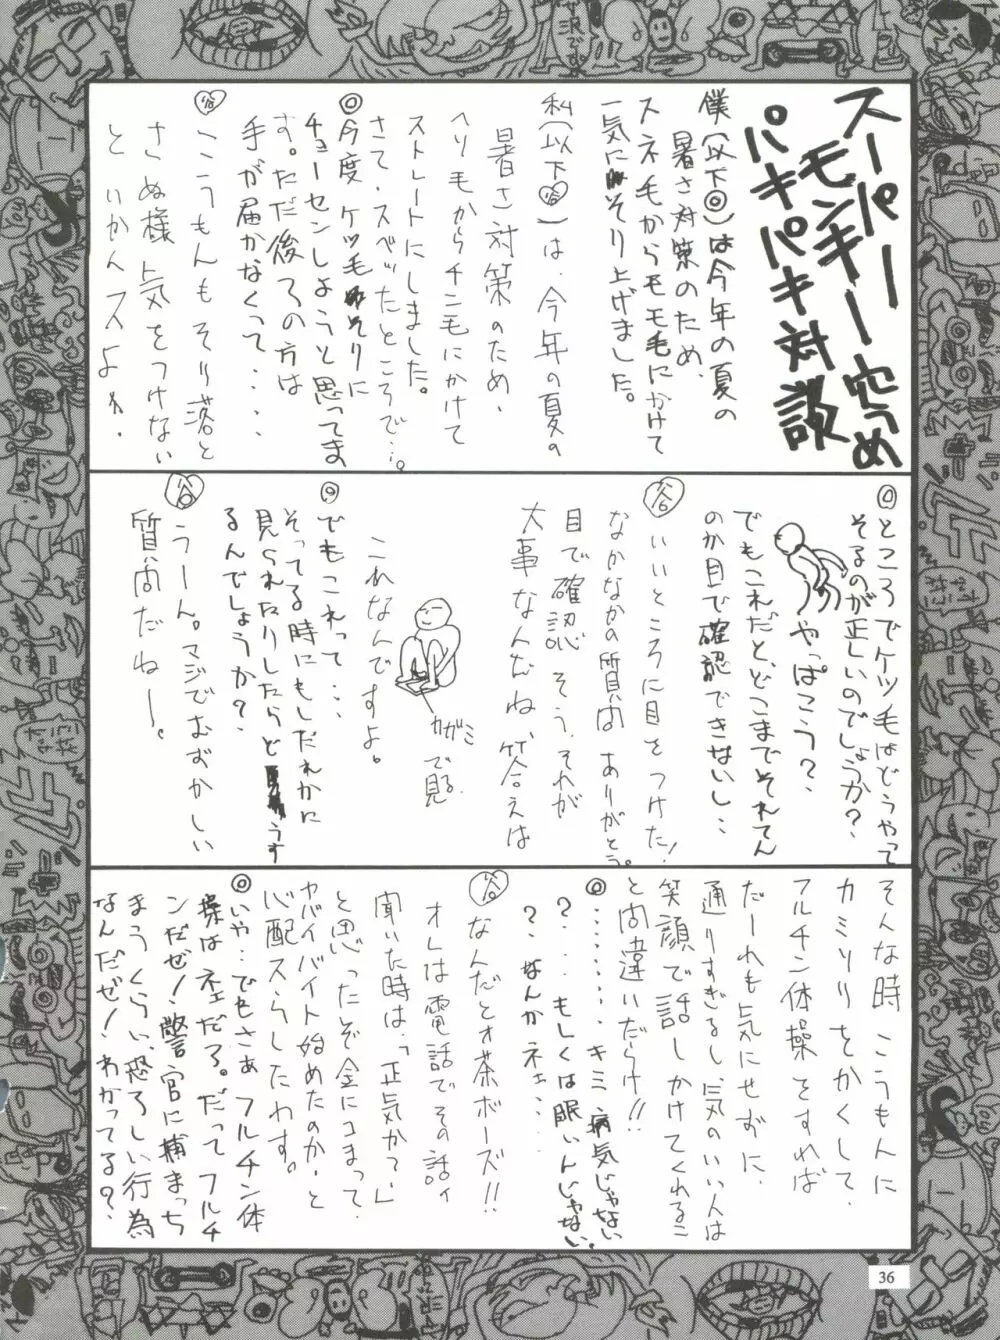 スーパー
モンキー穴うめ
パキパキ対談
僕(以下◎)は今年の夏の
暑さ対策のため、
スネ毛からモモ毛にかけて
一気にそり上げました。
私(以下谷)は、今年の夏の
暑さ対策のため、
ヘソ毛からチン毛にかけて
ストレートにしました。
さて、スベッたところで…。
◎今度ケツ毛そりに
チョーセンしようと思ってま
す。ただ後ろの方は
手が届かなくって・・・・
谷こうもんもそり落と
さぬ様気をつけない
といかんスよ。
◎ところでケツ毛はどうやって
そるのが正しいのでしょうか?
やっぱこう?
でもこれだと、どこまでそれてん
のか目で確認できないし・・
谷いいところに目をつけた!
なかなかの質問ありがとう。
目で確認、そう、それが
大事なんだね、答えは
カガミ
で見る
これなんですよ。
◎でもこれって・・・
そってる時にもしだれかに
見られたりしたらどうす
るんでしょうか?
谷うーん。マジでむずかしい
質問だねー。
そんな時こうもんに
カミソリをかくして、
フルチン体操をすれば
だーれも気にせずに、
通りすぎるし、気のいい人は
笑顔で話しかけてくれるこ
と間違いだらけ!!
◎・・・・・・・・キミ病気じゃない
?・・・もしくは眠いんじゃない
?・なんかネェ・・・
谷なんだとォ茶ボーズ!!
オレは電話でその話ィ
聞いた時は、「正気かっ?」
と思ったぞ金にコまって、
ヤバイバイト始めたのか、と
心配スらしたわす。
◎いや…でもさぁフルチン体
操はネェだろ。だってフルチ
ンだぜ!警官に捕まっち
まうくらい、恐ろしい行為
なんだぜ!わかってる?
36